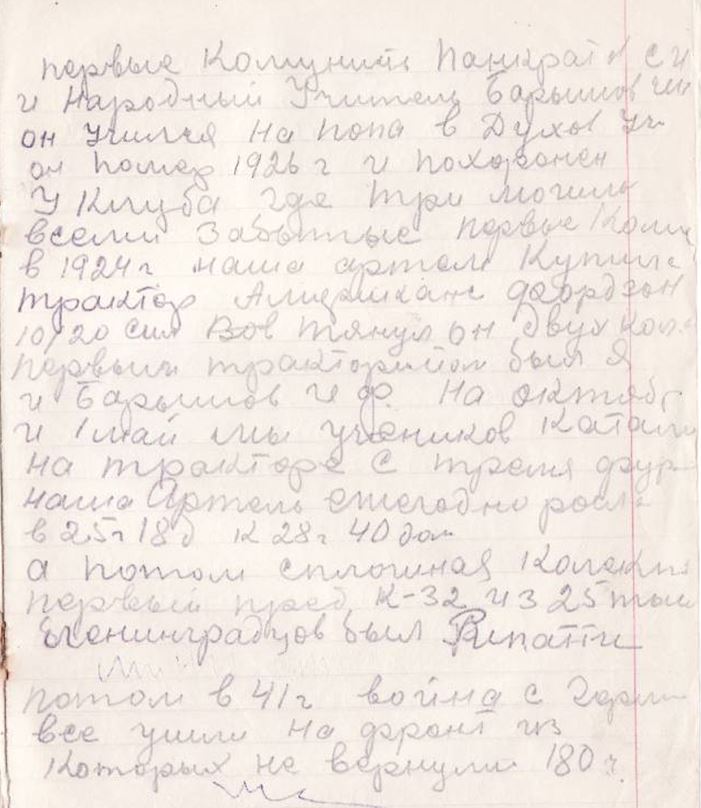 первые Комунист Панкратов С И
и Народный Учитель Барышов
он Учился на попа в Духов Уч
он помер 1926 г и похоронен
У Клуба где три могилы
всеми Забытые первые Комм
в 1924 г наша артель Купила
трактор Американс фордзон
10/20 сил Вов тянул он двух кол
первым трактористом был Я
и Барышов И ф. На октябр
и 1 май мы учеников катали
на тракторе с тремя фур
наша Артель ежегодно росла
в 25 г 18 д к 28 г 40 дом
а потом сплошная Колекти
первый пред К-32 из 25 тыш
Ленинградцов был
потом в 41 г война с Герм
все ушли на фронт из
которых не вернули 180 ч.